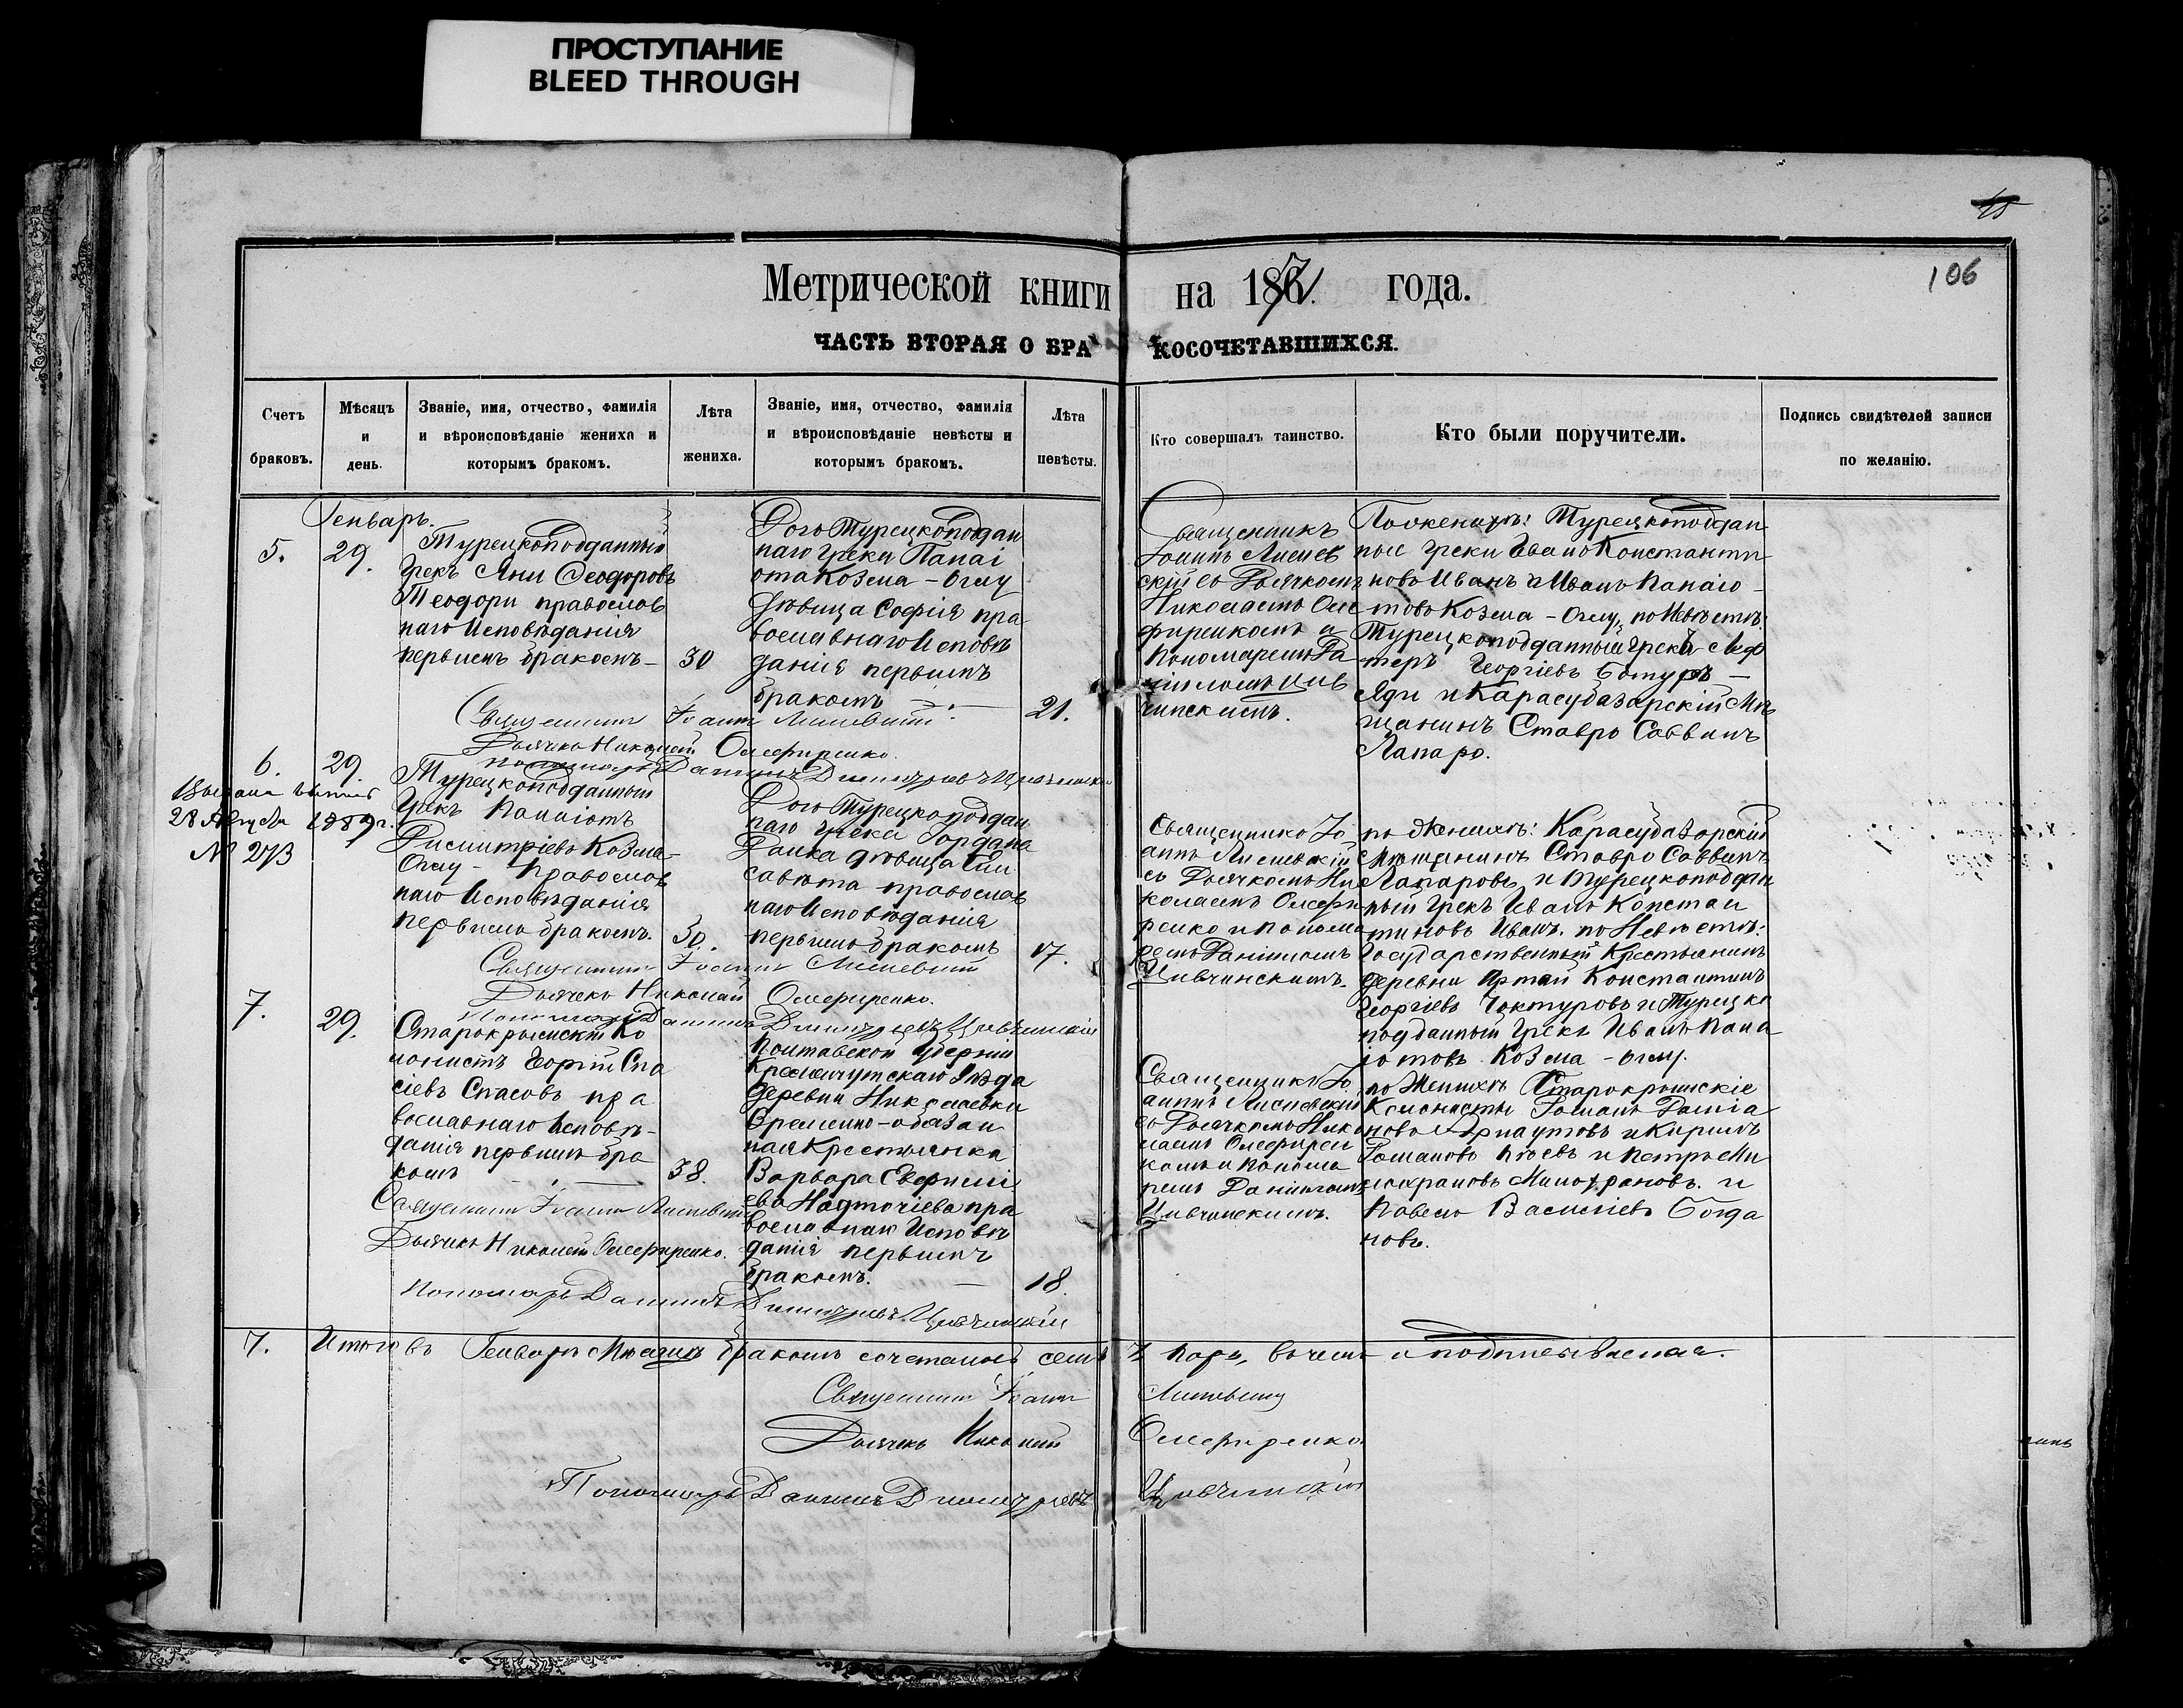 ПРОСТУПАНИЕ
BLEED THROUGH
45
106
Метрической книги на 1871 года.
ЧАСТЬ ВТОРАЯ О БРАКОСОЧЕТАВШИХСЯ.
Счетъ браковъ.
Мѣсяцъ и день.
Званіе, имя, отчество, фамилія
и вѣроисповѣданіе жениха и
которымъ бракомъ.
Лѣта жениха.
Званіе, имя, отчество, фамилія
и вѣроисповѣданіе невѣсты и
которымъ бракомъ.
Лѣта невѣсты.
Кто совершалъ таинство.
Кто были поручители.
Подпись свидѣтелей записи
по желанію.
Генваръ.
5.
29.
Турецкоподданный
Грекъ Яни Ѳеодоровъ
Теодори православ
наго Исповѣданія
первымъ бракомъ
30
Дочь Турецкоподдан
наго Грека Панаі
ота Козма-Оглу
Дѣвица Софія пра
вославнаго Исповѣ
данія первымъ
бракомъ
21.
Священникъ
Іоаннъ
скій съ Дьячкомъ
Николаемъ Оле
фиренкомъ и
Пономаремъ Да
ніиломъ Цив
чинскимъ.
Турецкоподдан
ные Греки Иванъ Константи
новъ Иванъ и Иванъ Панаіо
товъ Козма-Оглу, по Невѣстѣ:
Турецкоподданный Грекъ
Георгіевъ
и Карасубазарскій Мѣ
щанинъ Ставро Саввинъ
Лапаро.
Священникъ Іоаннъ
Дьячекъ Николай Олефиренко.
Пономарь Даніилъ Димитріевъ Цивчинскій
6.
29.
28 Августа 1889 г.
№ 273
Турецкоподданный
Грекъ Панаіотъ
Димитріевъ Козма-
Оглу - православ
наго Исповѣданія
первымъ бракомъ.
30.
Дочь Турецкоподдан
наго Грека
дѣвица Ели
савета православ
наго Исповѣданія
первымъ бракомъ
17.
Священникъ Іо
аннъ
съ Дьячкомъ Ни
колаемъ Олефи
ренко и Понома
ремъ Даніиломъ
Цивчинскимъ.
по Женихѣ: Карасубазарскій
Мѣщанинъ Ставро Саввинъ
Лапаровъ и Турецкоподдан
ный Грекъ Иванъ Констан
тиновъ Иванъ. по Невѣстѣ:
Государственный Крестьянинъ
деревни Константинъ
Георгіевъ и Турецко
подданный Грекъ Иванъ Пана
іотовъ Козма-Оглу.
Священникъ Іоаннъ
Дьячекъ Николай Олефиренко.
Пономарь Даніилъ Димитріевъ Цивчинскій
7.
29.
Старокрымскій Ко
лонистъ Георгій Спа
сіевъ Спасовъ пра
вославнаго Исповѣ-
данія первымъ бра
комъ
38.
Полтавской Губерніи
Кременчугскаго Уѣзда
деревни Николаевки
Временно-обязан
ная Крестьянка
Варвара Евфимі
ева Надточіева пра
вославнаго Исповѣ
данія первымъ
бракомъ.
18.
Священникъ Іо
аннъ
съ Дьячкомъ Нико
лаемъ Олефирен
комъ и Понома
ремъ Даніиломъ
Цивчинскимъ.
по Женихѣ Старокрымскіе
Колонисты
Арнаутовъ и Кирилъ
и Петръ
и
Павелъ Василіевъ Богда
новъ.
Священникъ Іоаннъ
Дьячекъ Николай Олефиренко.
Пономарь Даніилъ Димитріевъ Цивчинскій
7. Итого въ Генварѣ Мѣсяцѣ бракомъ сочетаны семь 7 паръ, въ чемъ и подписываемся.
Священникъ Іоаннъ
Дьячекъ Николай Олефиренко
Пономарь Даніилъ Димитріевъ Цивчинскій